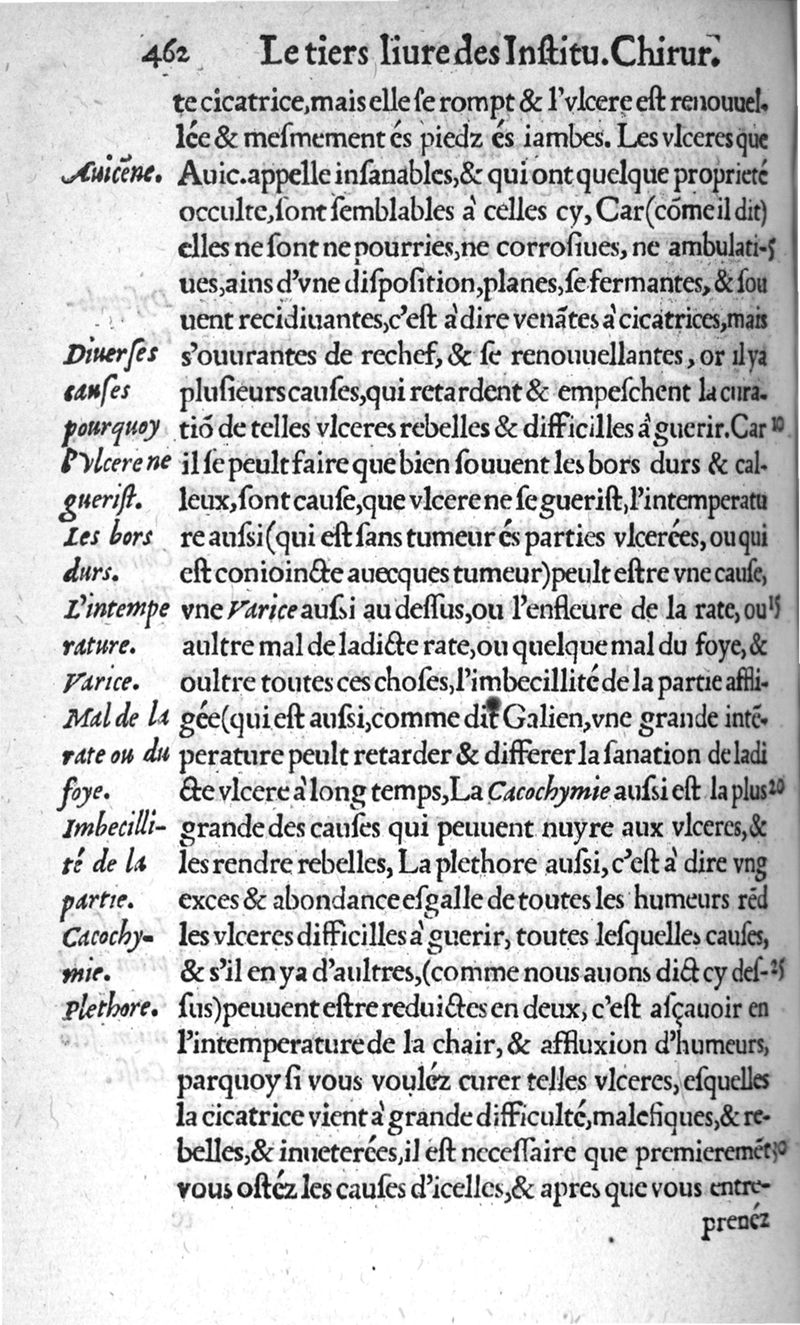 462 Le tiers liure des Inſtitu. Chirur.
te cicatrice, mais elle ſe rompt & l'vlcere eſt renouuel-
lée & meſmement és piedz és iambes. Les vlceres que
Auicēne. Auic. appelle inſanables, & qui ont quelque proprieté
occulte, ſont ſemblables à celles cy, Car (cōme il dit)
elles ne ſont ne pourries, ne corroſiues, ne ambulati- 5
ues, ains d'vne diſpoſition, planes, ſe fermantes, & ſou
uent recidiuantes, c'eſt à dire venātes à cicatrices, mais
Diuerſes s'ouurantes de rechef, & ſe renouuellantes, or il ya
cauſes pluſieurs cauſes, qui retardent & empeſchent la cura-
pourquoy tiō de telles vlceres rebelles & difficilles à guerir. Car 10
l'vlcere ne il ſe peult faire que bien ſouuent les bors durs & cal-
gueriſt. leux, ſont cauſe, que vlcere ne ſe gueriſt, l'intemperatu
Les bors re auſsi (qui eſt ſans tumeur és parties vlcerées, ou qui
durs. eſt conioincte auecques tumeur) peult eſtre vne cauſe,
L'intempe vne Varice auſsi au deſſus, ou l'enfleure de la rate, ou 15
rature. aultre mal de ladicte rate, ou quelque mal du foye, &
Varice. oultre toutes ces choſes, l'imbecillité de la partie affli-
Mal de la gée (qui eſt auſsi, comme dit Galien, vne grande intē-
rate ou du perature peult retarder & differer la ſanation de ladi
foye. cte vlcere à long temps, La Cacochymie auſsi eſt la plus 20
Imbecilli- grande des cauſes qui peuuent nuyre aux vlceres, &
té de la les rendre rebelles, La plethore auſsi, c'eſt à dire vng
partie. exces & abondance eſgalle de toutes les humeurs rēd
Cacochy- les vlceres difficilles à guerir, toutes leſquelles cauſes,
mie. & s'il en ya d'aultres, (comme nous auons dict cy deſ- 25
Plethore. ſus) peuuent eſtre reduictes en deux, c'eſt aſçauoir en
l'intemperature de la chair, & affluxion d'humeurs,
parquoy ſi vous vouléz curer telles vlceres, eſquelles
la cicatrice vient à grande difficulté, malefiques, & re-
belles, & inueterées, il eſt neceſſaire que premieremēt 30
vous oſtéz les cauſes d'icelles, & apres que vous entre-
prenéz